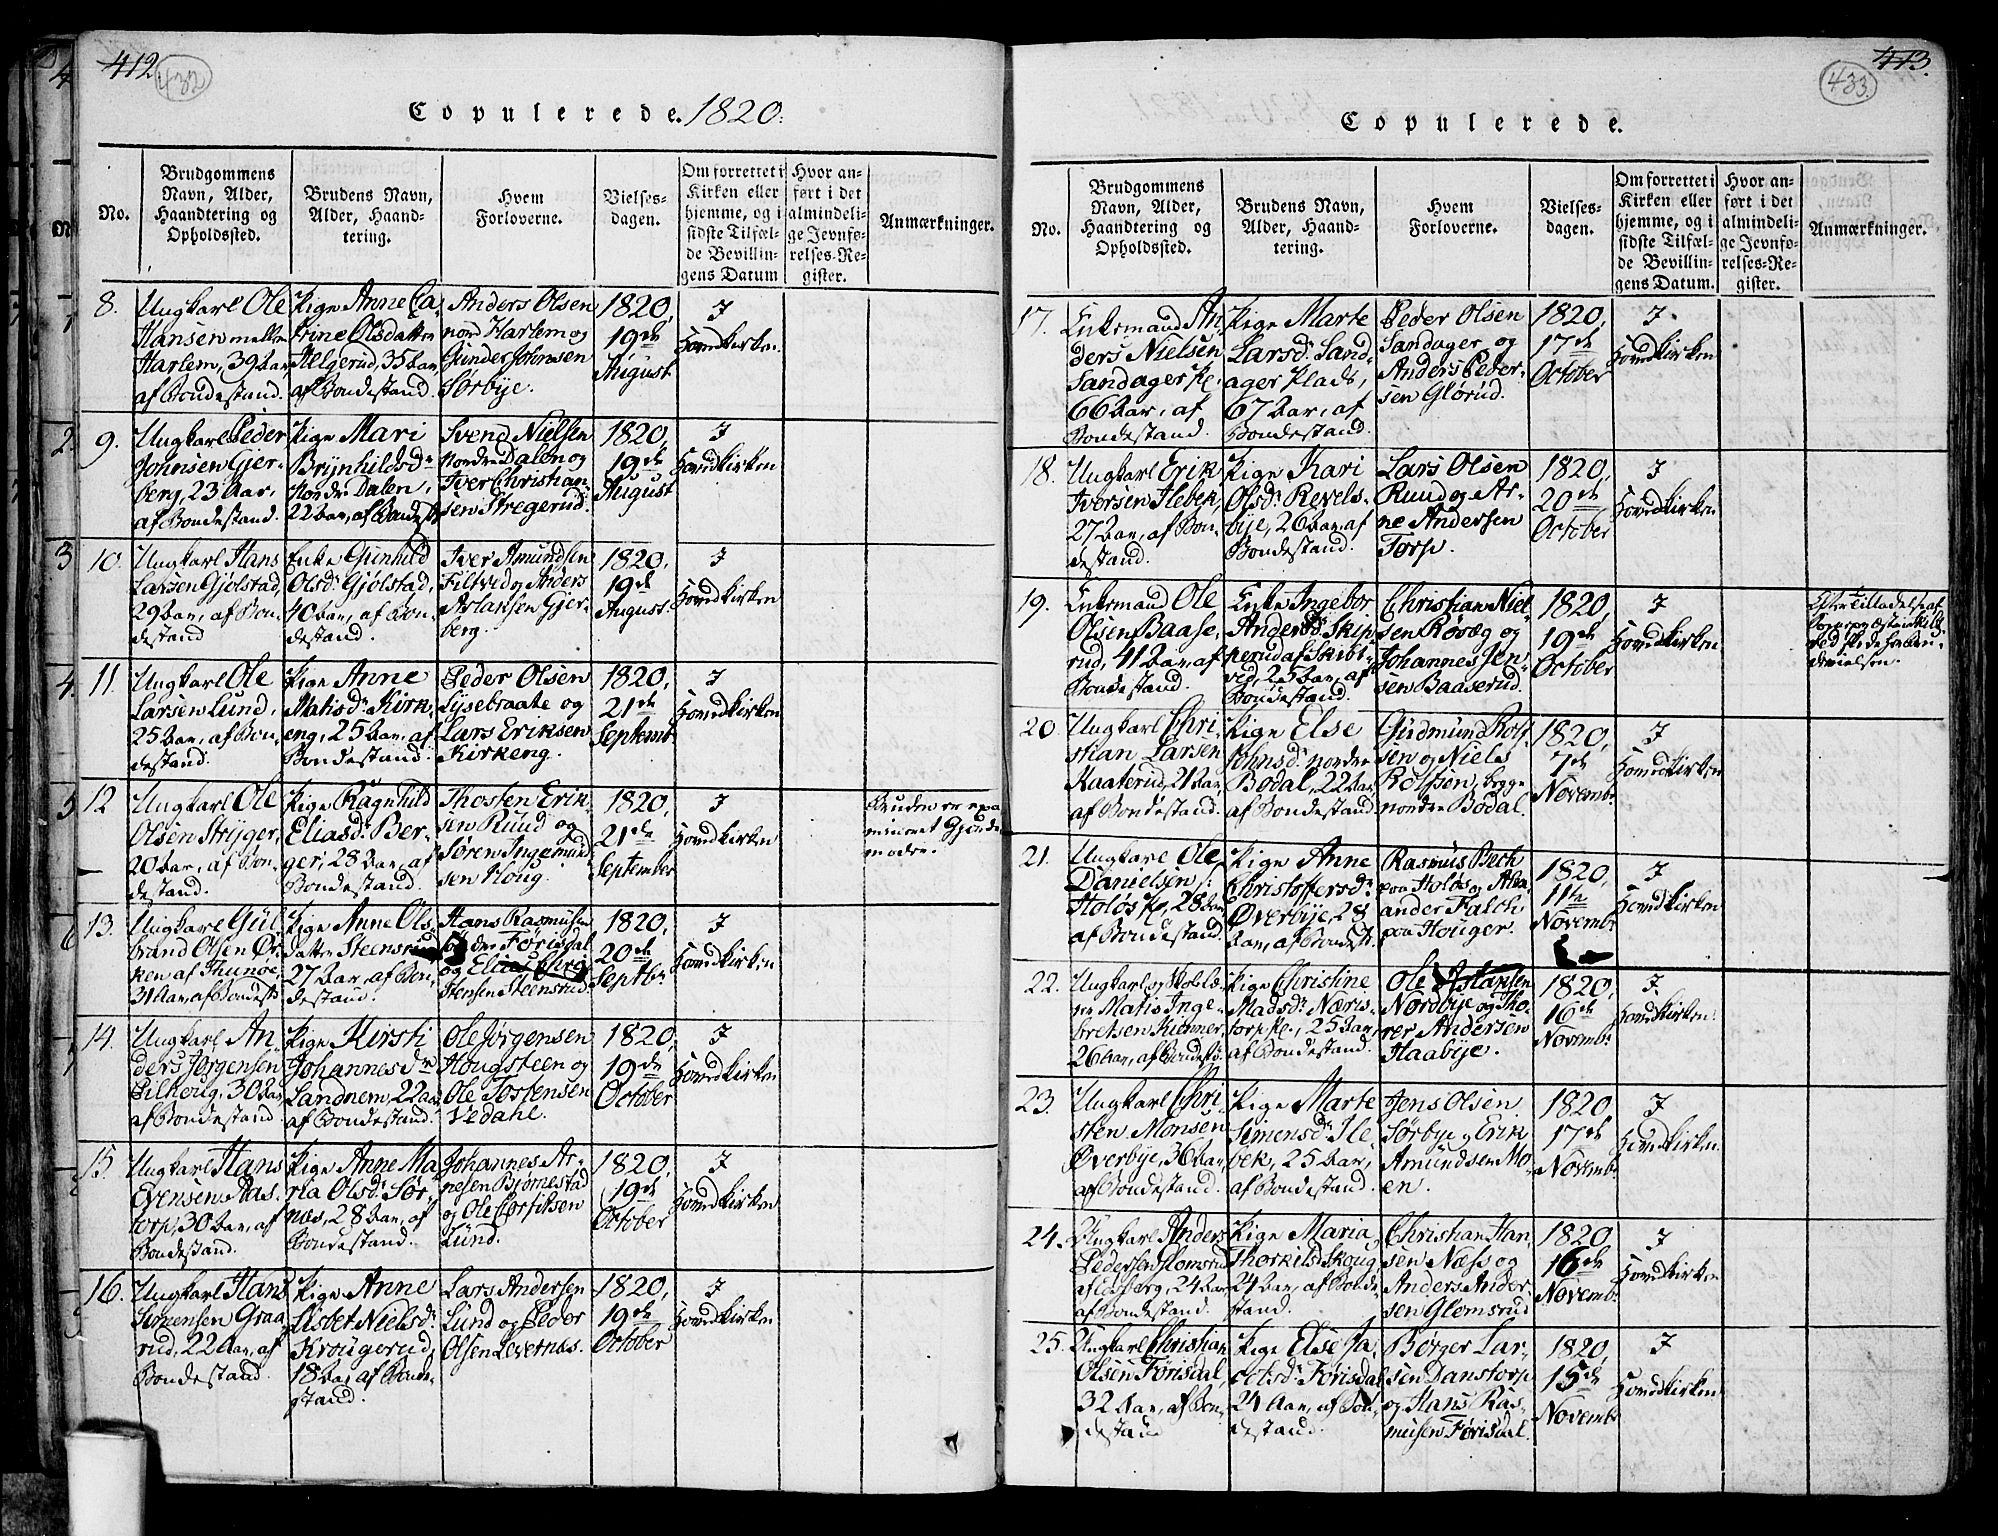 412.
432
Copulerede. 1820.
No.
Brudgommens
Navn, Alder,
Haandtering og
Opholdssted.
Brudens Navn,
Alder, Haand-
tering.
Hvem
Forloverne.
Vielses-
dagen.
Om forrettet i
Kirken eller
hjemme, og i
sidste Tilfæl-
de Bevillin-
gens Datum
Hvor an-
ført i det
almindeli-
ge Jevnfø-
relses-Re-
gister.
Anmærkninger.
8.
Ungkarl Ole
Hansen
Harlem, 39 Aar
af Bondestand.
Pige Anne Ca-
trine Olsdatter
Helgerud, 35 Aar
af Bondestand.
Anders Olsen
nord Harlem og
Gunder Johnsen
Sørbye.
1820,
19de
August
I
Hovedkirken
9.
Ungkarl Peder
Johnsen Gjer-
berg, 23 Aar,
af Bondestand.
Pige Mari
Brynhildsdr
Nordre Dalen,
22 Aar, af Bondest.
Svend Nielsen
Nordre Dalen og
Iver Christian-
sen Stregerud.
1820,
19de
August
I
Hovedkirken
10.
Ungkarl Hans
Larsen Gjølstad,
29 Aar, af Bon-
destand
Enke Gunhild
Olsdr Gjølstad,
40 Aar, af Bon-
destand.
Iver Amundsen
Filtved og Anders
Aslaksen Gjer-
berg.
1820,
19de
August.
I
Hovedkirken
11.
Ungkarl Ole
Larsen Lund,
25 Aar, af Bon-
destand.
Pige Anne
Matisdr Kirk-
eng, 25 Aar, af
Bondestand.
Peder Olsen
Lysebraate og
Lars Eriksen
Kirkeng.
1820,
21de
Septemb.
I
Hovedkirken
12
Ungkarl Ole
Olsen Stryger,
20 Aar, af Bon-
destand.
Pige Ragnhild
Eliasdr Ber-
ger, 28 Aar, af
Bondestand.
Thosten Erik-
sen Ruud og
Søren Ingemund-
sen Houg.
1820,
21de
September
I
Hovedkirken
Bruden er
13.
Ungkarl Gul-
brand Olsen Ør-
ken af Thunøe,
31 Aar, af Bondest.
Pige Anne Ols-
datter Steensrud
27 Aar, af Bon-
destand.
Hans Rasmusen
Førisdal
og Elias Chri-
stensen Steensrud.
1820,
20de
Septbr.
I
Hovedkirken
14.
Ungkarl An-
ders Jørgensen
Pilkoug, 30 Aar,
af Bondestand
Pige Kirsti
Johannesdr
Landnem, 22 Aar
af Bondestand.
Ole Jørgensen
Hougsteen og
Ole Tostensen
Vedahl.
1820,
19de
October
I
Hovedkirken
15.
Ungkarl Hans
Evensen Aas-
torp, 30 Aar, af
Bondestand.
Pige Anne Ma-
ria Olsdr Sør-
næs, 28 Aar, af
Bondestand.
Johannes Ar-
nesen Bjørnestad
og Ole Corfitsen
Lund.
1820,
19de
October
I
Hovedkirken
16.
Ungkarl Hans
Simensen Graa-
rud, 22 Aar, af
Bondestand.
Pige Anne
Lisbet Nielsdr
Krougerud,
18 Aar, af Bonde-
stand.
Lars Andersen
Lund og Peder
Olsen Levernæs.
1820,
19de
October
I
Hovedkirken
413.
433.
Copulerede.
No.
Brudgommens
Navn, Alder,
Haandtering og
Opholdssted.
Brudens Navn,
Alder, Haand-
tering.
Hvem
Forloverne.
Vielses-
dagen.
Om forrettet i
Kirken eller
hjemme, og i
sidste Tilfæl-
de Bevillin-
gens Datum.
Hvor an-
ført i det
almindeli-
ge Jevnfø-
relses-Re-
gister.
Anmærkninger.
17.
Enkemand An-
ders Nielsen
Sandager Pl.
66 Aar, af
Bondestand.
Pige Marte
Larsdr Sand-
ager Plads,
67 Aar, af
Bondestand.
Peder Olsen
Sandager og
Anders Peder-
sen Glørud.
1820,
17de
October
I
Hovedkirken
18.
Ungkarl Erik
Iversen Ilebek,
27 Aar, af Bon-
destand.
Pige Kari
Olsdr Revels-
bye, 26 Aar, af
Bondestand.
Lars Olsen
Ruud og Ar-
ne Andersen
Torp.
1820,
20de
October
I
Hovedkirken
19.
Enkemand Ole
Olsen Baase-
rud, 41 Aar, af
Bondestand.
Enke Ingebor
Andersdr Skip-
perud af Skibt-
ved, 25 Aar, af
Bondestand.
Christian Niel-
sen Røsæg og
Johannes Jen-
sen Baaserud.
1820,
19de
October
I
Hovedkirken
Efter Tilladelse af
20.
Ungkarl Chri-
stian Larsen
Kaaterud, 21 Aar,
af Bondestand.
Pige Else
Johnsdr nordre
Bodal, 22 Aar
af Bondestand.
Gudmund Rolf-
sen og Niels
Rolfsen, begge
nordre Bodal.
1820,
7de
Novembr.
I
Hovedkirken
21.
Ungkarl Ole
Danielsen
Holøs Pl. 28 Aar
af Bondestand.
Pige Anne
Christoffersdr
Øverbye, 28
Aar, af Bondest.
Rasmus Bech
paa Holøs og Alex-
ander Falch
paa Houger.
1820,
11te
Novembr.
I
Hovedkirken
22.
Ungkarl og Skolelæ-
rer Matis Inge-
bretsen Kienner,
26 Aar, af Bondest.
Pige Christine
Madsdr Næris-
torp Pl., 25 Aar,
af Bondestand.
Ole Aslaksen
Nordbye og Tho-
rer Andersen
Haabye.
1820,
16de
Novembr.
I
Hovedkirken.
23.
Ungkarl Chri-
sten Monsen
Øverbye, 36 Aar,
af Bondestand.
Pige Marte
Simensdr Ile-
bek, 25 Aar,
af Bondestand.
Jens Olsen
Sørbye og Erik
Amundsen Mo-
en.
1820,
17de
Novembr.
I
Hovedkirken.
24.
Ungkarl Anders
Pedersen Glomsrud
24 Aar
af Bondestand.
Pige Maria
Thorkildsdr Skoug,
24 Aar, af Bonde-
stand.
Christian Han-
sen Næss og
Anders Ander-
sen Glemsrud
1820
16de
Novembr.
I
Hovedkirken
25.
Ungkarl Christian
Olsen Førisdal,
32 Aar, af Bon-
destand
Pige Else Ja-
cobsdr Førisdal
24 Aar, af Bon-
destand.
Børger Lar-
sen Danstorp
og Hans Ras-
musen Førisdal.
1820,
15de
Novembr.
I
Hovedkirken